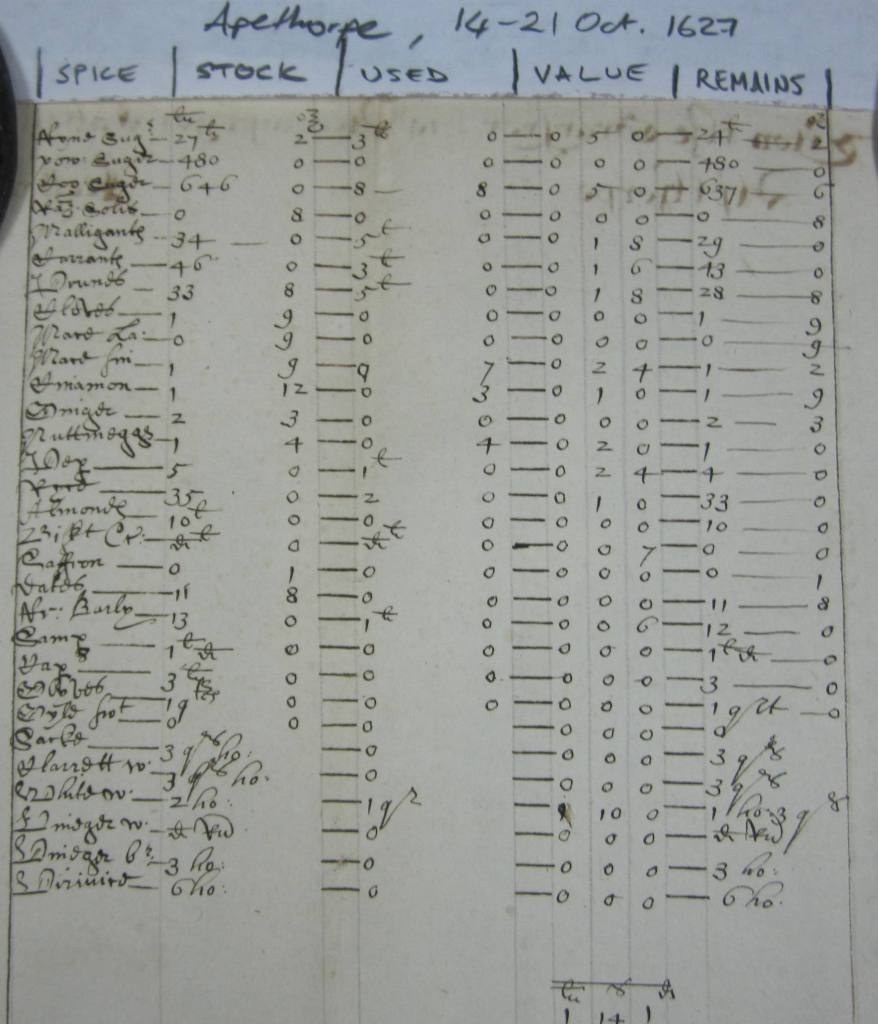 Apethorpe, 14-21 Oct. 1627
SPICE STOCK USED VALUE REMAINS
li oz oz
Fyne Sugr 27 li 2 3 li 0 0 5 0 24 li 2
pow: Suger 480 0 0 0 0 0 0 480 0
Cos Suger 646 0 8 8 0 5 0 637 6
Solis 0 8 0 0 0 0 0 0 8
Malligants 34 0 5 li 0 0 1 8 29 0
Currants 46 0 3 li 0 0 1 6 43 0
Prunes 33 8 5 li 0 0 1 8 28 8
Cloves 1 9 0 0 0 0 0 1 9
Mace La: 0 9 0 0 0 0 0 0 9
Mace sm 1 9 0 7 0 2 4 1 2
Cinamon 1 12 0 3 0 1 0 1 9
Ginger 2 3 0 0 0 0 0 2 3
Nuttmeggs 1 4 0 4 0 2 0 1 0
Pep 5 0 1 li 0 0 2 4 4 0
Rice 35 0 2 0 0 1 0 33 0
Almonds 10 li 0 0 0 0 0 0 10 0
di li 0 di li 0 0 0 7 0 0
Saffron 0 1 0 0 0 0 0 0 1
Dates 11 8 0 0 0 0 0 11 8
Fr: Barly 13 0 1 li 0 0 0 6 12 0
Samp 1 li di 0 0 0 0 0 0 1 li di 0
Cap 3 li 0 0 0 0 0 0 3 0
Olives 1 q 0 0 0 0 0 0 1 q 0
Oyle 0 0 0 0 0 0 0
Sacke 3 qrs ho: 0 0 0 0 3 qrs
Clarrett w: 3 qrs ho: 0 0 0 0 3 qrs
White w: 2 ho: 1 qr 1 10 0 1 ho: 3 qrs
Vineger w: di 0 0 0 0 di
Vineger br: 3 ho: 0 0 0 0 3 ho:
6 ho: 0 0 0 0 6 ho:
li s d
1 14 1